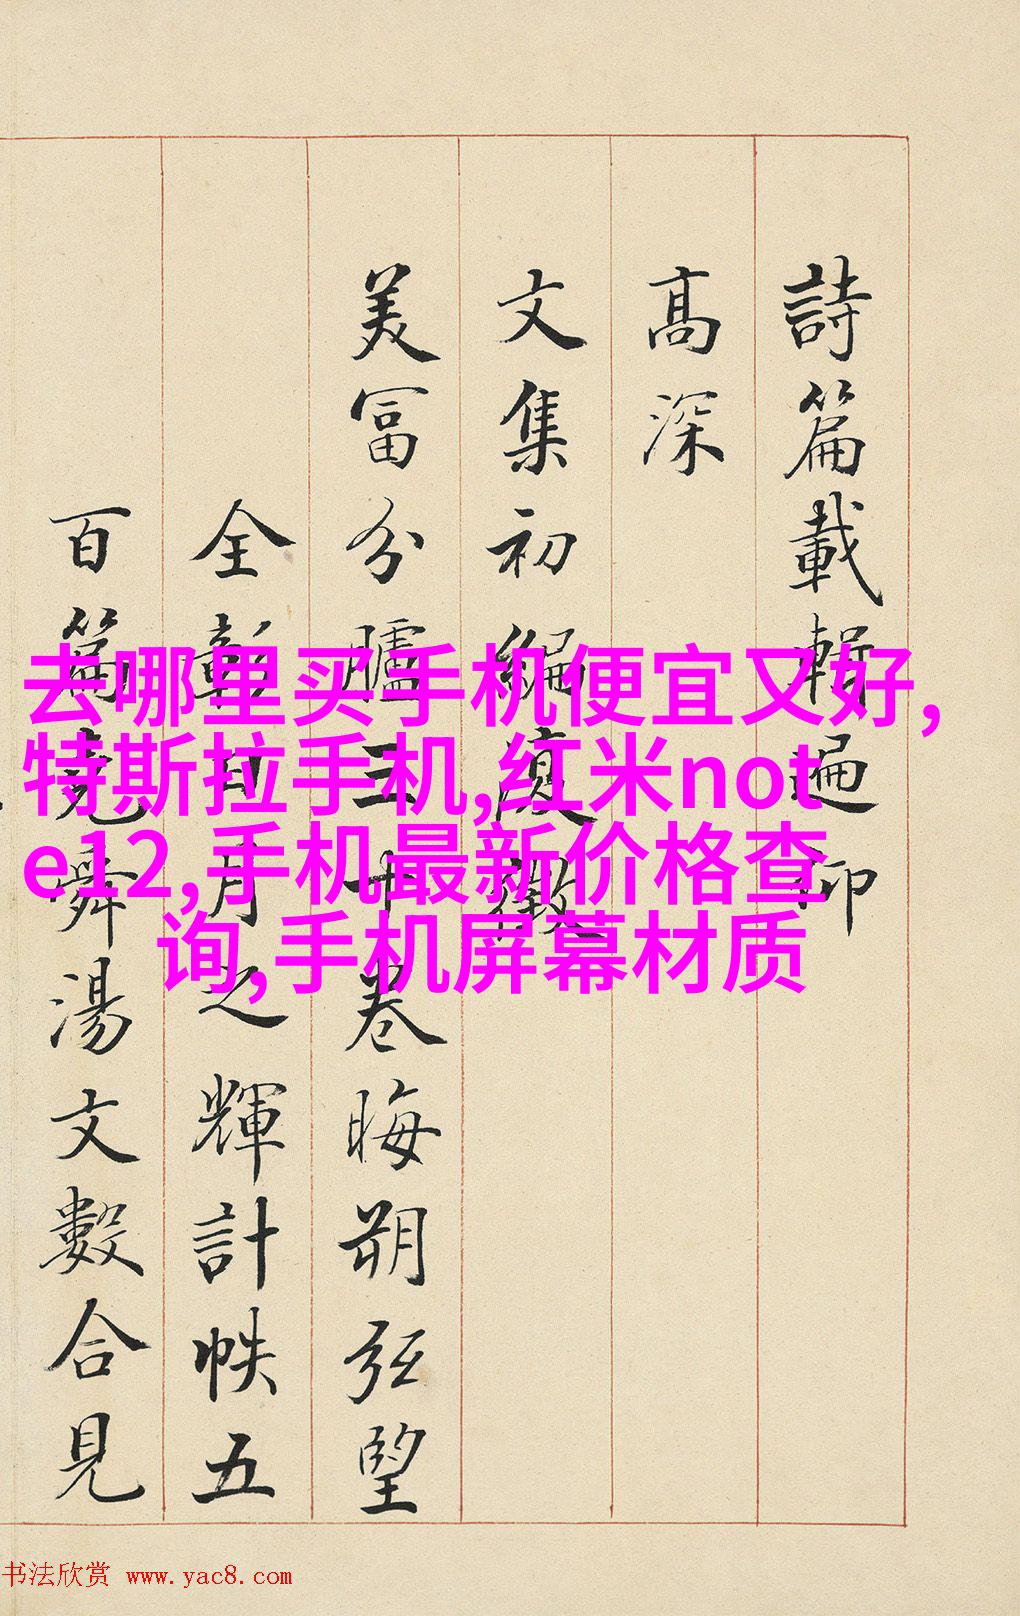 詩篇載輯遍仰
高深
文集初編復徵
美富分臚三十卷晦朔弦望
全彰日月之輝計帙五
百篇堯舜湯文數合見
去哪里买手机便宜又好,
特斯拉手机,红米not
e12,手机最新价格查
询,手机屏幕材质
书法欣赏 www.yac8.com